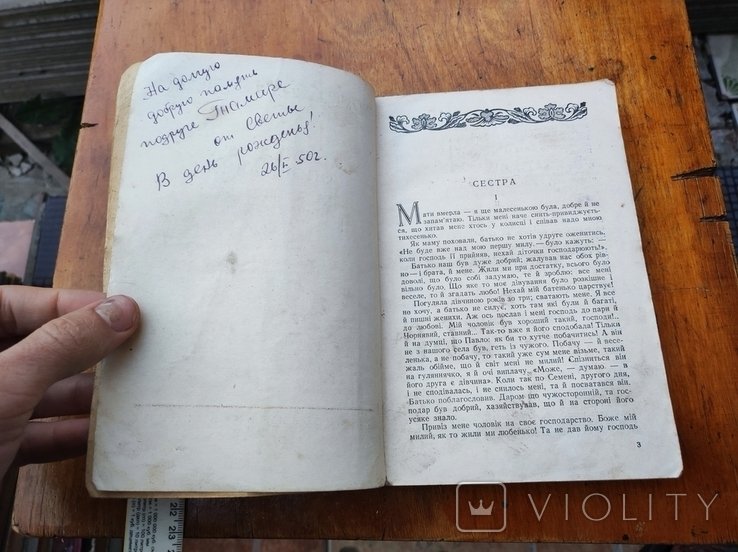 На долгую
добрую память
подруге Тамаре
от Светы
В день рожденья!
26/I 50 г.
СЕСТРА
I
Мати вмерла — я ще малесенькою була, добре й не
запам'ятаю. Тільки мені наче снить-привиджуєть-
ся, що хитав мене хтось у колисці і співав надо мною
тихесенько.
Як маму поховали, батько не хотів удруге оженитись.
«Не буде вже над мою першу милу, — було кажуть: —
коли господь її прийняв, нехай діточки господарюють!».
Батько наш був дуже добрий; жалував нас обох рів-
но — і брата, й мене. Жили ми при достатку, всього було
доволі, що було собі задумаю, те й зроблю: все мені
вільно було. Що яке то моє дівування було розкішне і
веселе, то й згадать любо! Нехай мій батенько царствує!
Погуляла дівчиною років зо три; сватають мене. Я все
но хочу, а батько не силує, хоть там які були й багаті,
й пишні женихи. Аж ось послав і мені господь до пари й
до любові. Мій чоловік був хороший такий, господи!..
Чорнявий, ставний... Так-то вже я його сподобала! Тільки
й на думці, що Павло: як би то хутче побачитись! А він
не з нашого села був, геть із чужого. Побачу — й весе-
ленька, а не побачу, то такий уже сум мене візьме, такий
жаль обійме, що й світ мені не милий! Спізниться він
на гуляннячко, я й очі виплачу. «Може, — думаю, — в
його друга є дівчина». Коли так по Семені, другого дня,
і не сподівалась, і не снилось мені, та й посватався він.
Батько поблагословив. Даром що чужосторонній, та гос-
подар був добрий, хазяйствував, що й на стороні його
усяке знало.
Привіз мене чоловік на своє господарство. Боже мій
милий, як то жили ми любенько! Та не дав йому господь
3
VIOLITY